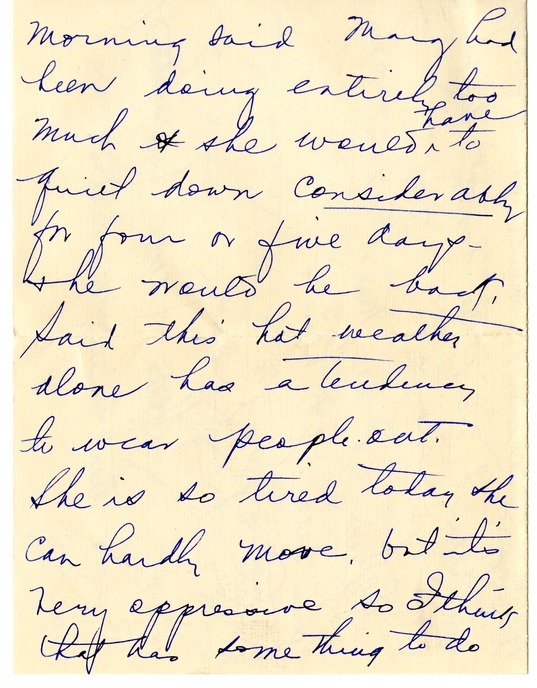 Morning said Mary had
been doing entirely too
much & she would have to
quiet down considerably
for four or five days -
she would be back.
Said this hot weather
alone has a tendency
to wear people out.
She is so tired today she
can hardly move, but it's
very oppressive so I think
that has something to do